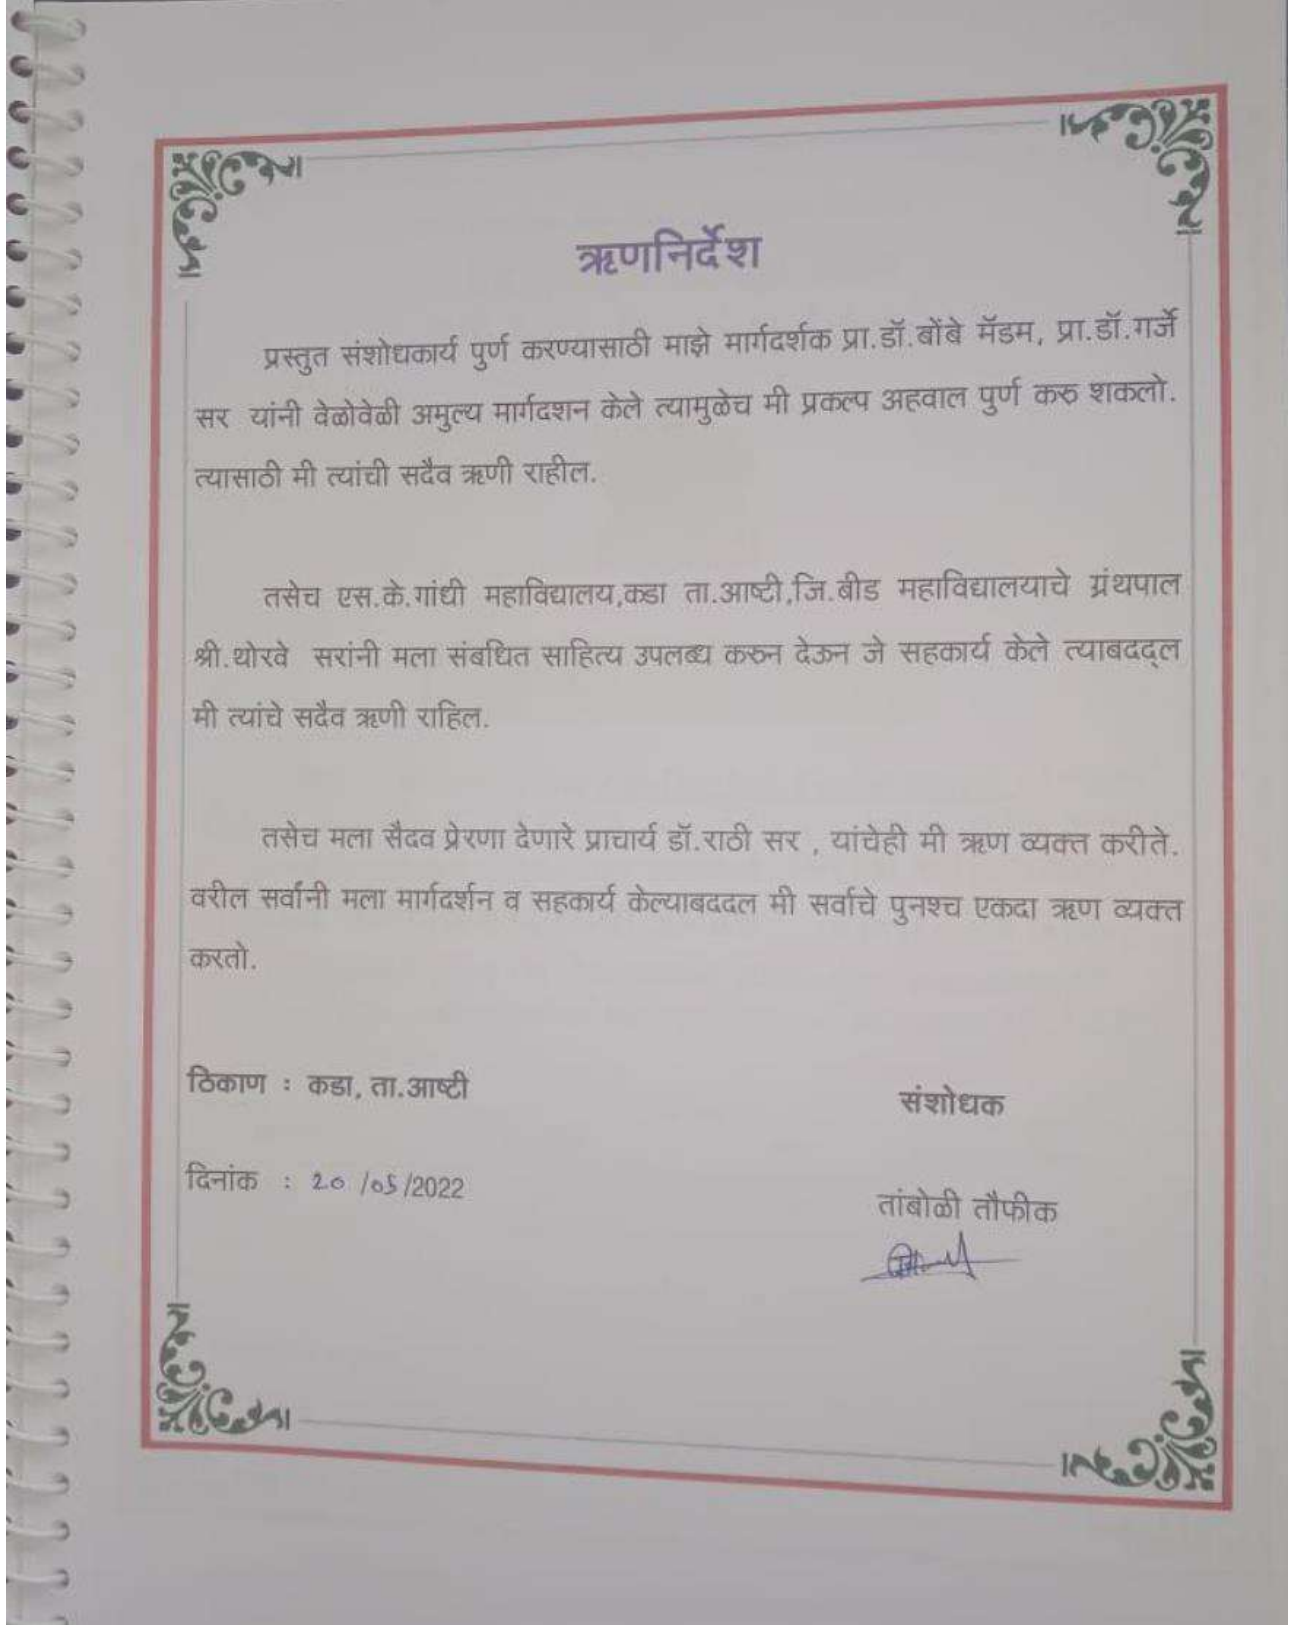 ऋणनिर्देश
प्रस्तुत संशोधकार्य पुर्ण करण्यासाठी माझे मार्गदर्शक प्रा.डॉ.बोंबे मॅडम, प्रा.डॉ.गर्जे
सर यांनी वेळोवेळी अमुल्य मार्गदशन केले त्यामुळेच मी प्रकल्प अहवाल पुर्ण करु शकलो.
त्यासाठी मी त्यांची सदैव ऋणी राहील.
तसेच एस.के.गांधी महाविद्यालय,कडा ता.आष्टी,जि.बीड महाविद्यालयाचे ग्रंथपाल
श्री.थोरवे सरांनी मला संबधित साहित्य उपलब्ध करुन देऊन जे सहकार्य केले त्याबदद्ल
मी त्यांचे सदैव ऋणी राहिल.
तसेच मला सैदव प्रेरणा देणारे प्राचार्य डॉ.राठी सर , यांचेही मी ऋण व्यक्त करीते.
वरील सर्वांनी मला मार्गदर्शन व सहकार्य केल्याबददल मी सर्वाचे पुनश्च एकदा ऋण व्यक्त
करतो.
ठिकाण : कडा, ता.आष्टी
संशोधक
दिनांक : २० /०५/2022
तांबोळी तौफीक